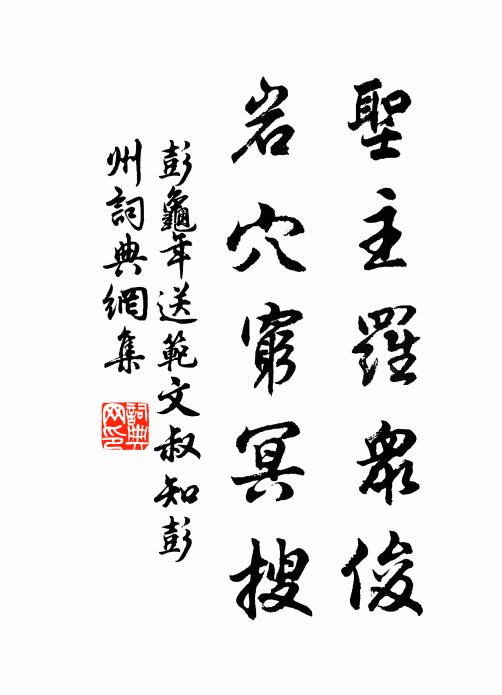 聖主羅眾俊
岩穴窮冥搜
彭龜年送範文叔知彭
州詞典網集
詞典
网印